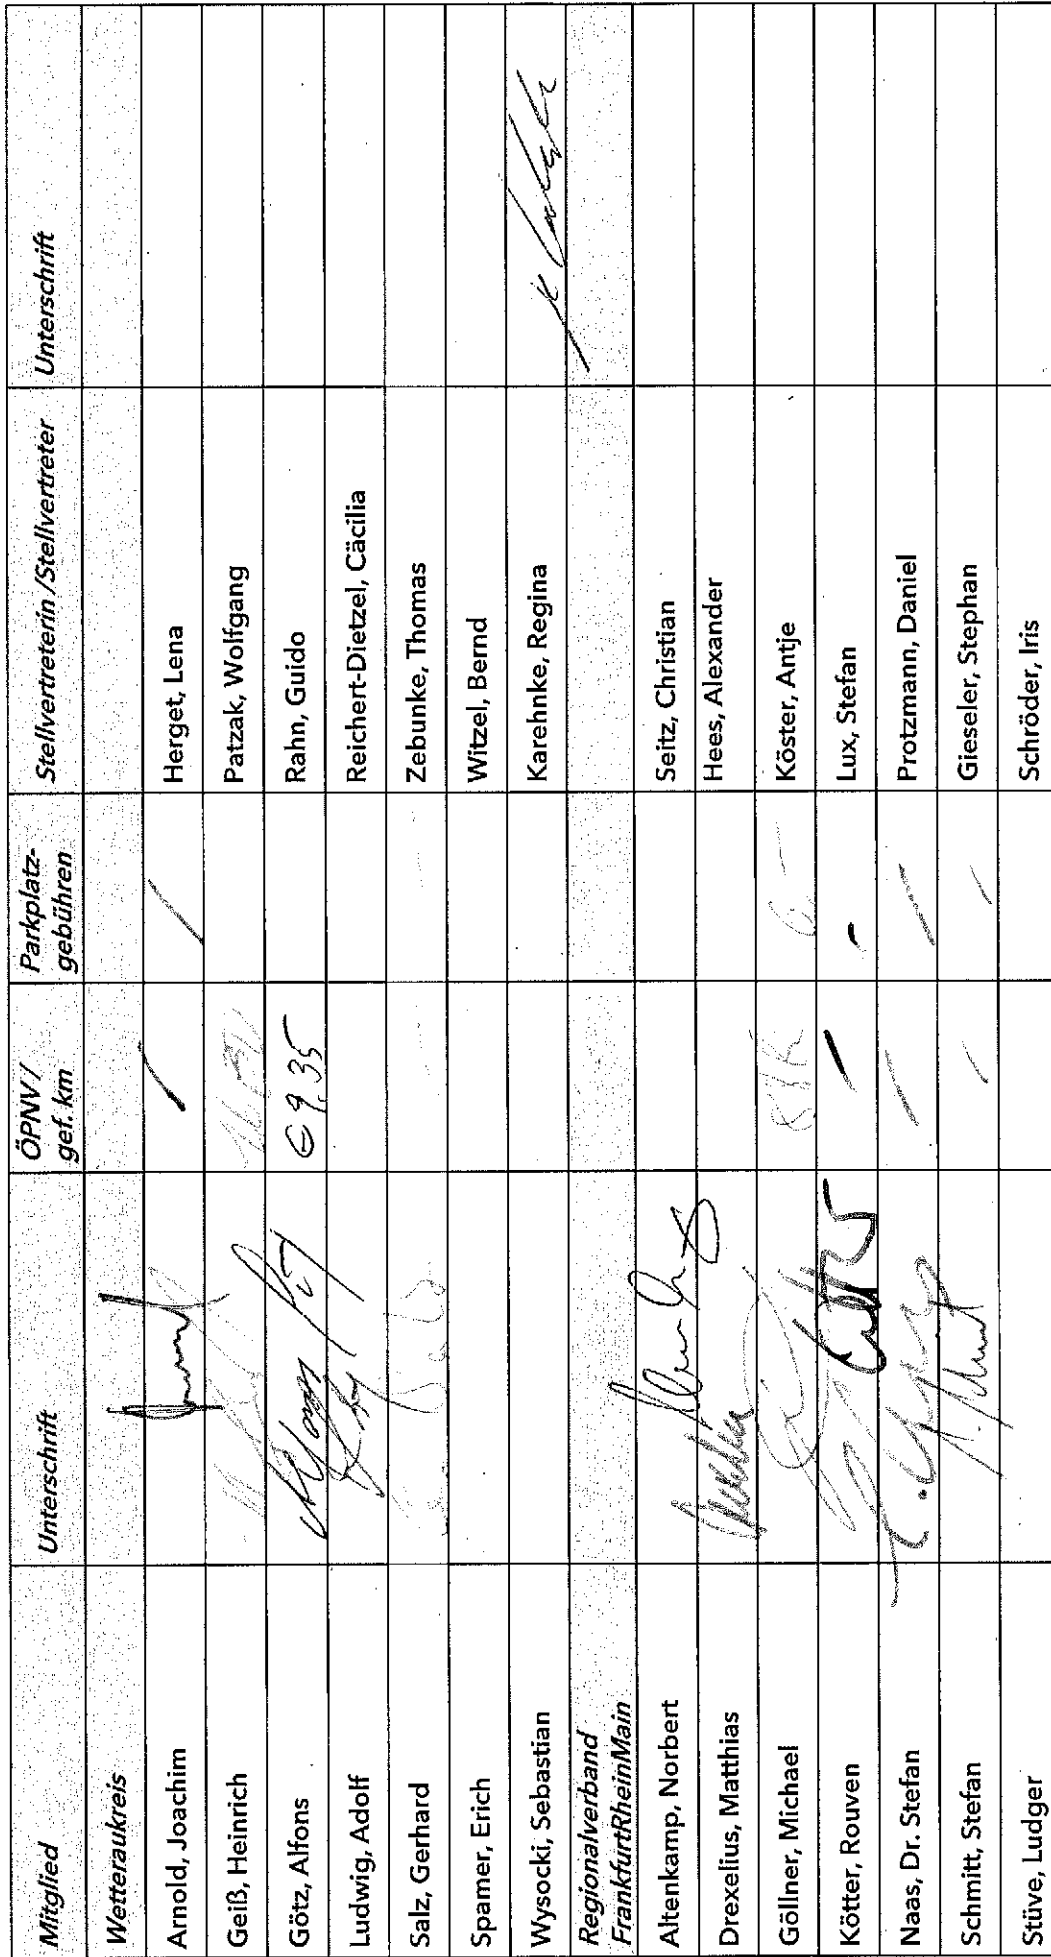 Mitglied Unterschrift ÖPNV / gef. km Parkplatz-gebühren Stellvertreterin /Stellvertreter Unterschrift
Wetteraukreis
Arnold, Joachim / / Herget, Lena
Geiß, Heinrich Patzak, Wolfgang
Götz, Alfons € 9,35 Rahn, Guido
Ludwig, Adolf Reichert-Dietzel, Cäcilia
Salz, Gerhard Zebunke, Thomas
Spamer, Erich Witzel, Bernd
Wysocki, Sebastian Karehnke, Regina
Regionalverband
FrankfurtRheinMain
Altenkamp, Norbert Seitz, Christian
Drexelius, Matthias Hees, Alexander
Göllner, Michael 6,- Köster, Antje
Kötter, Rouven / - Lux, Stefan
Naas, Dr. Stefan / / Protzmann, Daniel
Schmitt, Stefan / / Gieseler, Stephan
Stüve, Ludger Schröder, Iris